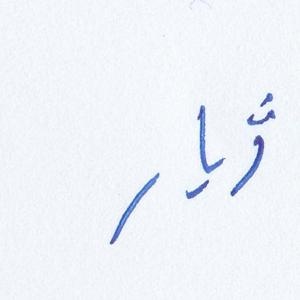 ژیار